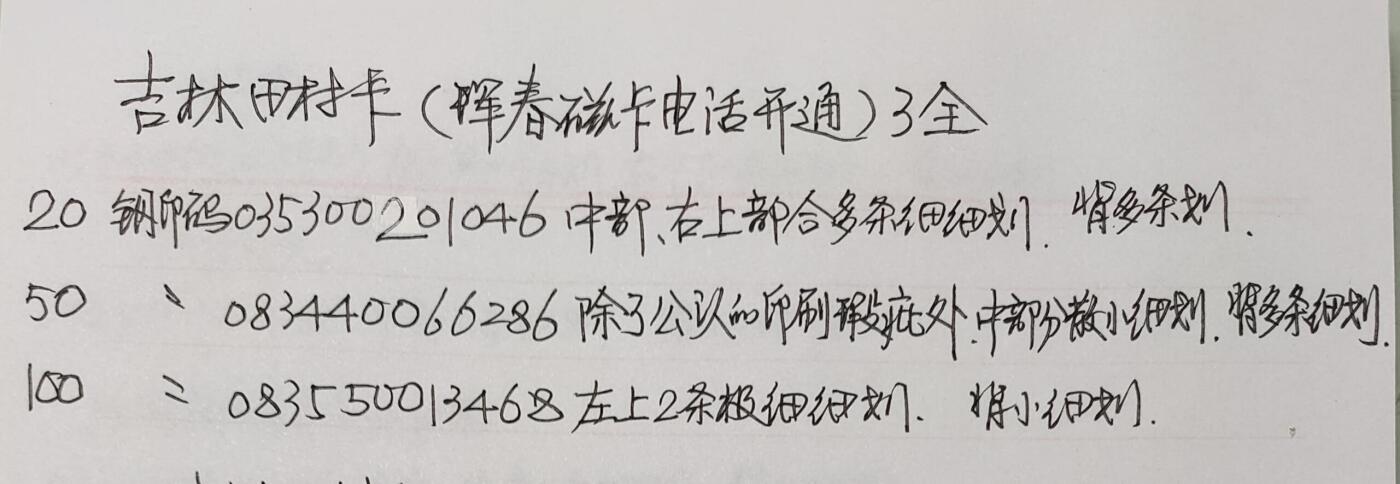 吉林田村卡(珲春磁卡电话开通)3全
20 钢印码035300201046 中部、右上部含多条细细划. 背多条划.
50 〃 083440066286 除了公认的印刷瑕疵外.中部分散小细划. 背多条细划.
100 〃 083550013468 左上2条极细细划. 背小细划.